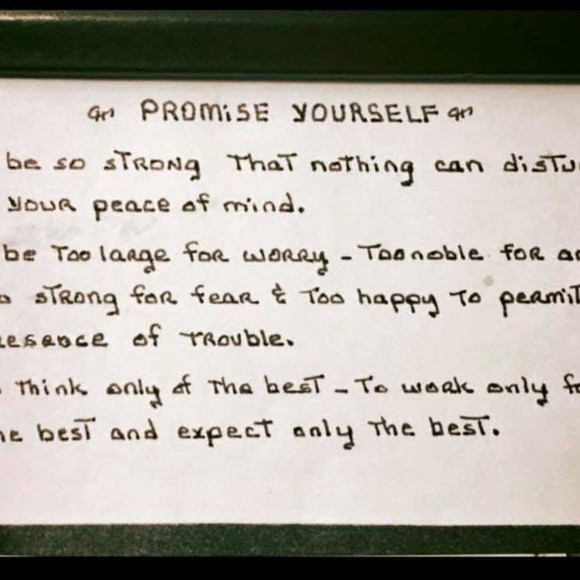 PROMISE YOURSELF
be so STRONG THAT nothing can distu
YOUR peace of mind.
be Too large for WORRY - Too noble for a
STRONG for fear & Too happy To permit
esence of TROUBLE.
Think only of The besT - To work only f
he best and expect only The besT.